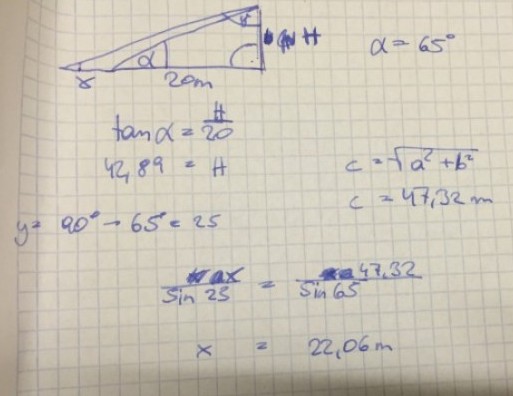 H α = 65°
α
x 20m
tan α = H/20
42,89 = H
c = √a² + b²
c = 47,32 m
y = 90° - 65° = 25
x/sin 25 = 47,32/sin 65
x = 22,06 m